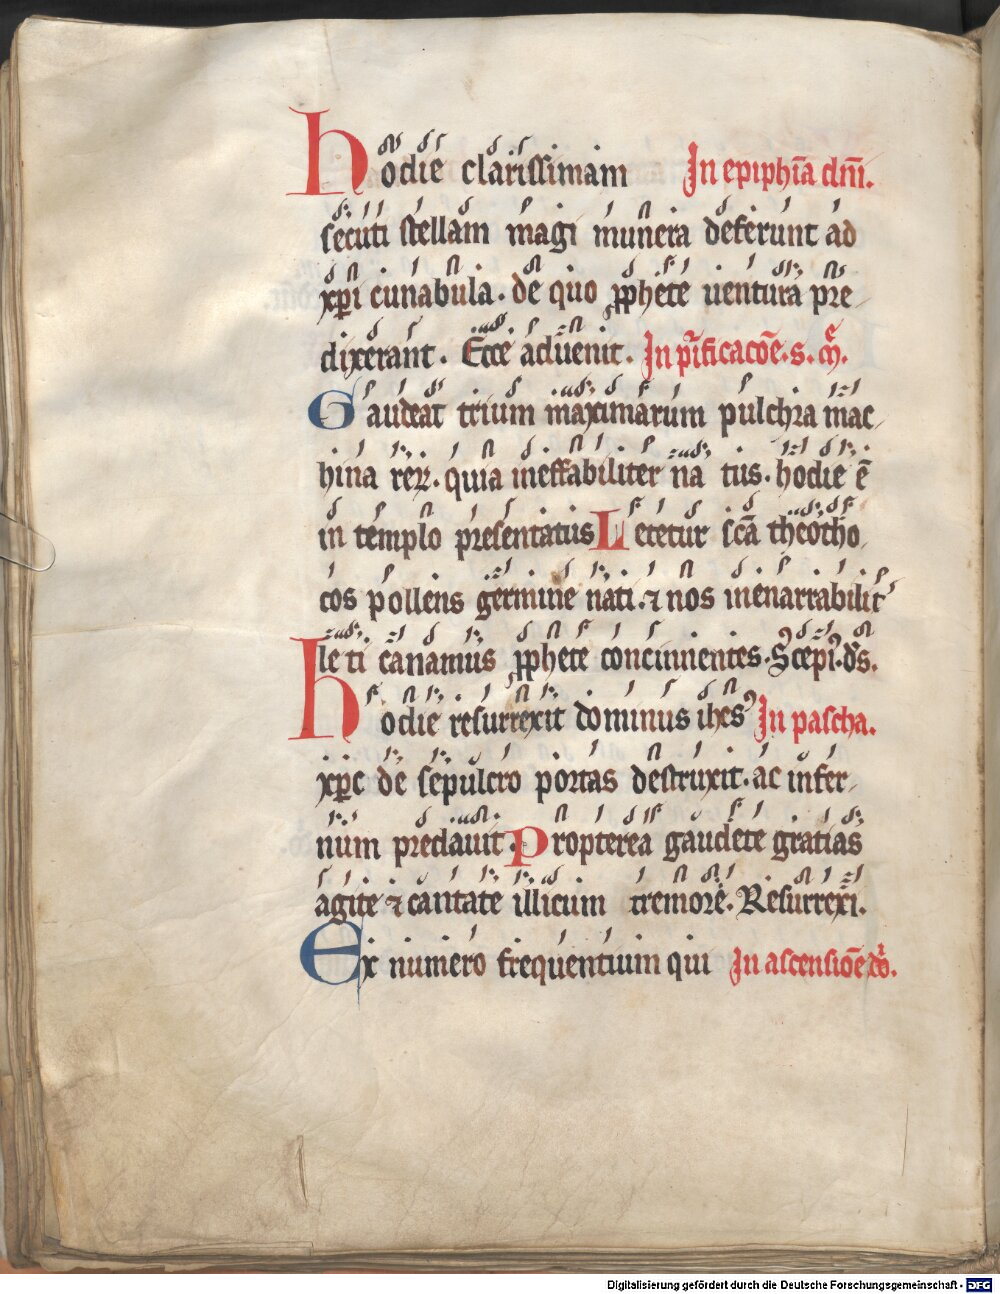 hodie clarissimam In epiphīa dnī.
secuti stellam magi munera deferunt ad
xp̄i cunabula. de quo ꝓphete uentura pre
dixerant. Ecce aduenit. In p̄ificacōe. s. m̄.
Gaudeat trium maximarum pulchra mac
hina reꝝ. quia ineffabiliter na tus. hodie ē
in templo presentatus Letetur scā theotho
cos pollens germine nati. ⁊ nos inenarrabilit᷒
le ti canamus ꝓphete concinnentes. Suscepim᷒. ds̄.
hodie resurrexit dominus ihesꝰ In pascha.
xp̄c de sepulcro portas destruxit. ac infer
num predauit. Propterea gaudete gratias
agite ⁊ cantate illi cum tremore. Resurrexi.
Ex numero frequentium qui In ascensiōe do.
Digitalisierung gefördert durch die Deutsche Forschungsgemeinschaft - DFG